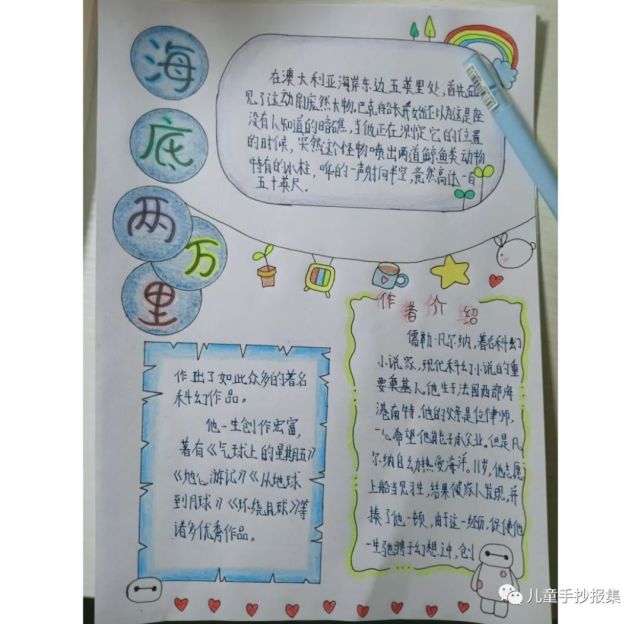 海底两万里
在澳大利亚海岸东边五英里处,首先
见了这动的庞然大物.巴克船长开始还以为这是座
没有人知道的暗礁,当他正在测定它的位置
的时候,突然这个怪物喷出两道鲸鱼类动物
特有的水柱,哗的一声射向半空,竟然高达一百
五十英尺.
作者介绍
儒勒·凡尔纳,著名科幻
小说家,现代科幻小说的重
要奠基人.他生于法国西部海
港南特.他的父亲是位律师,
一心希望他能子承父业.但是凡
尔纳自幼热爱海洋.11岁,他志愿
上船当见习生,结果被家人发现,并
揍了他一顿,由于这一经历,促使他
一生驰骋于幻想之中,创
作出了如此众多的著名
科幻作品。
他一生创作宏富,
著有《气球上的星期五》
《地心游记》《从地球
到月球》《环绕月球》等
诸多优秀作品。
儿童手抄报集